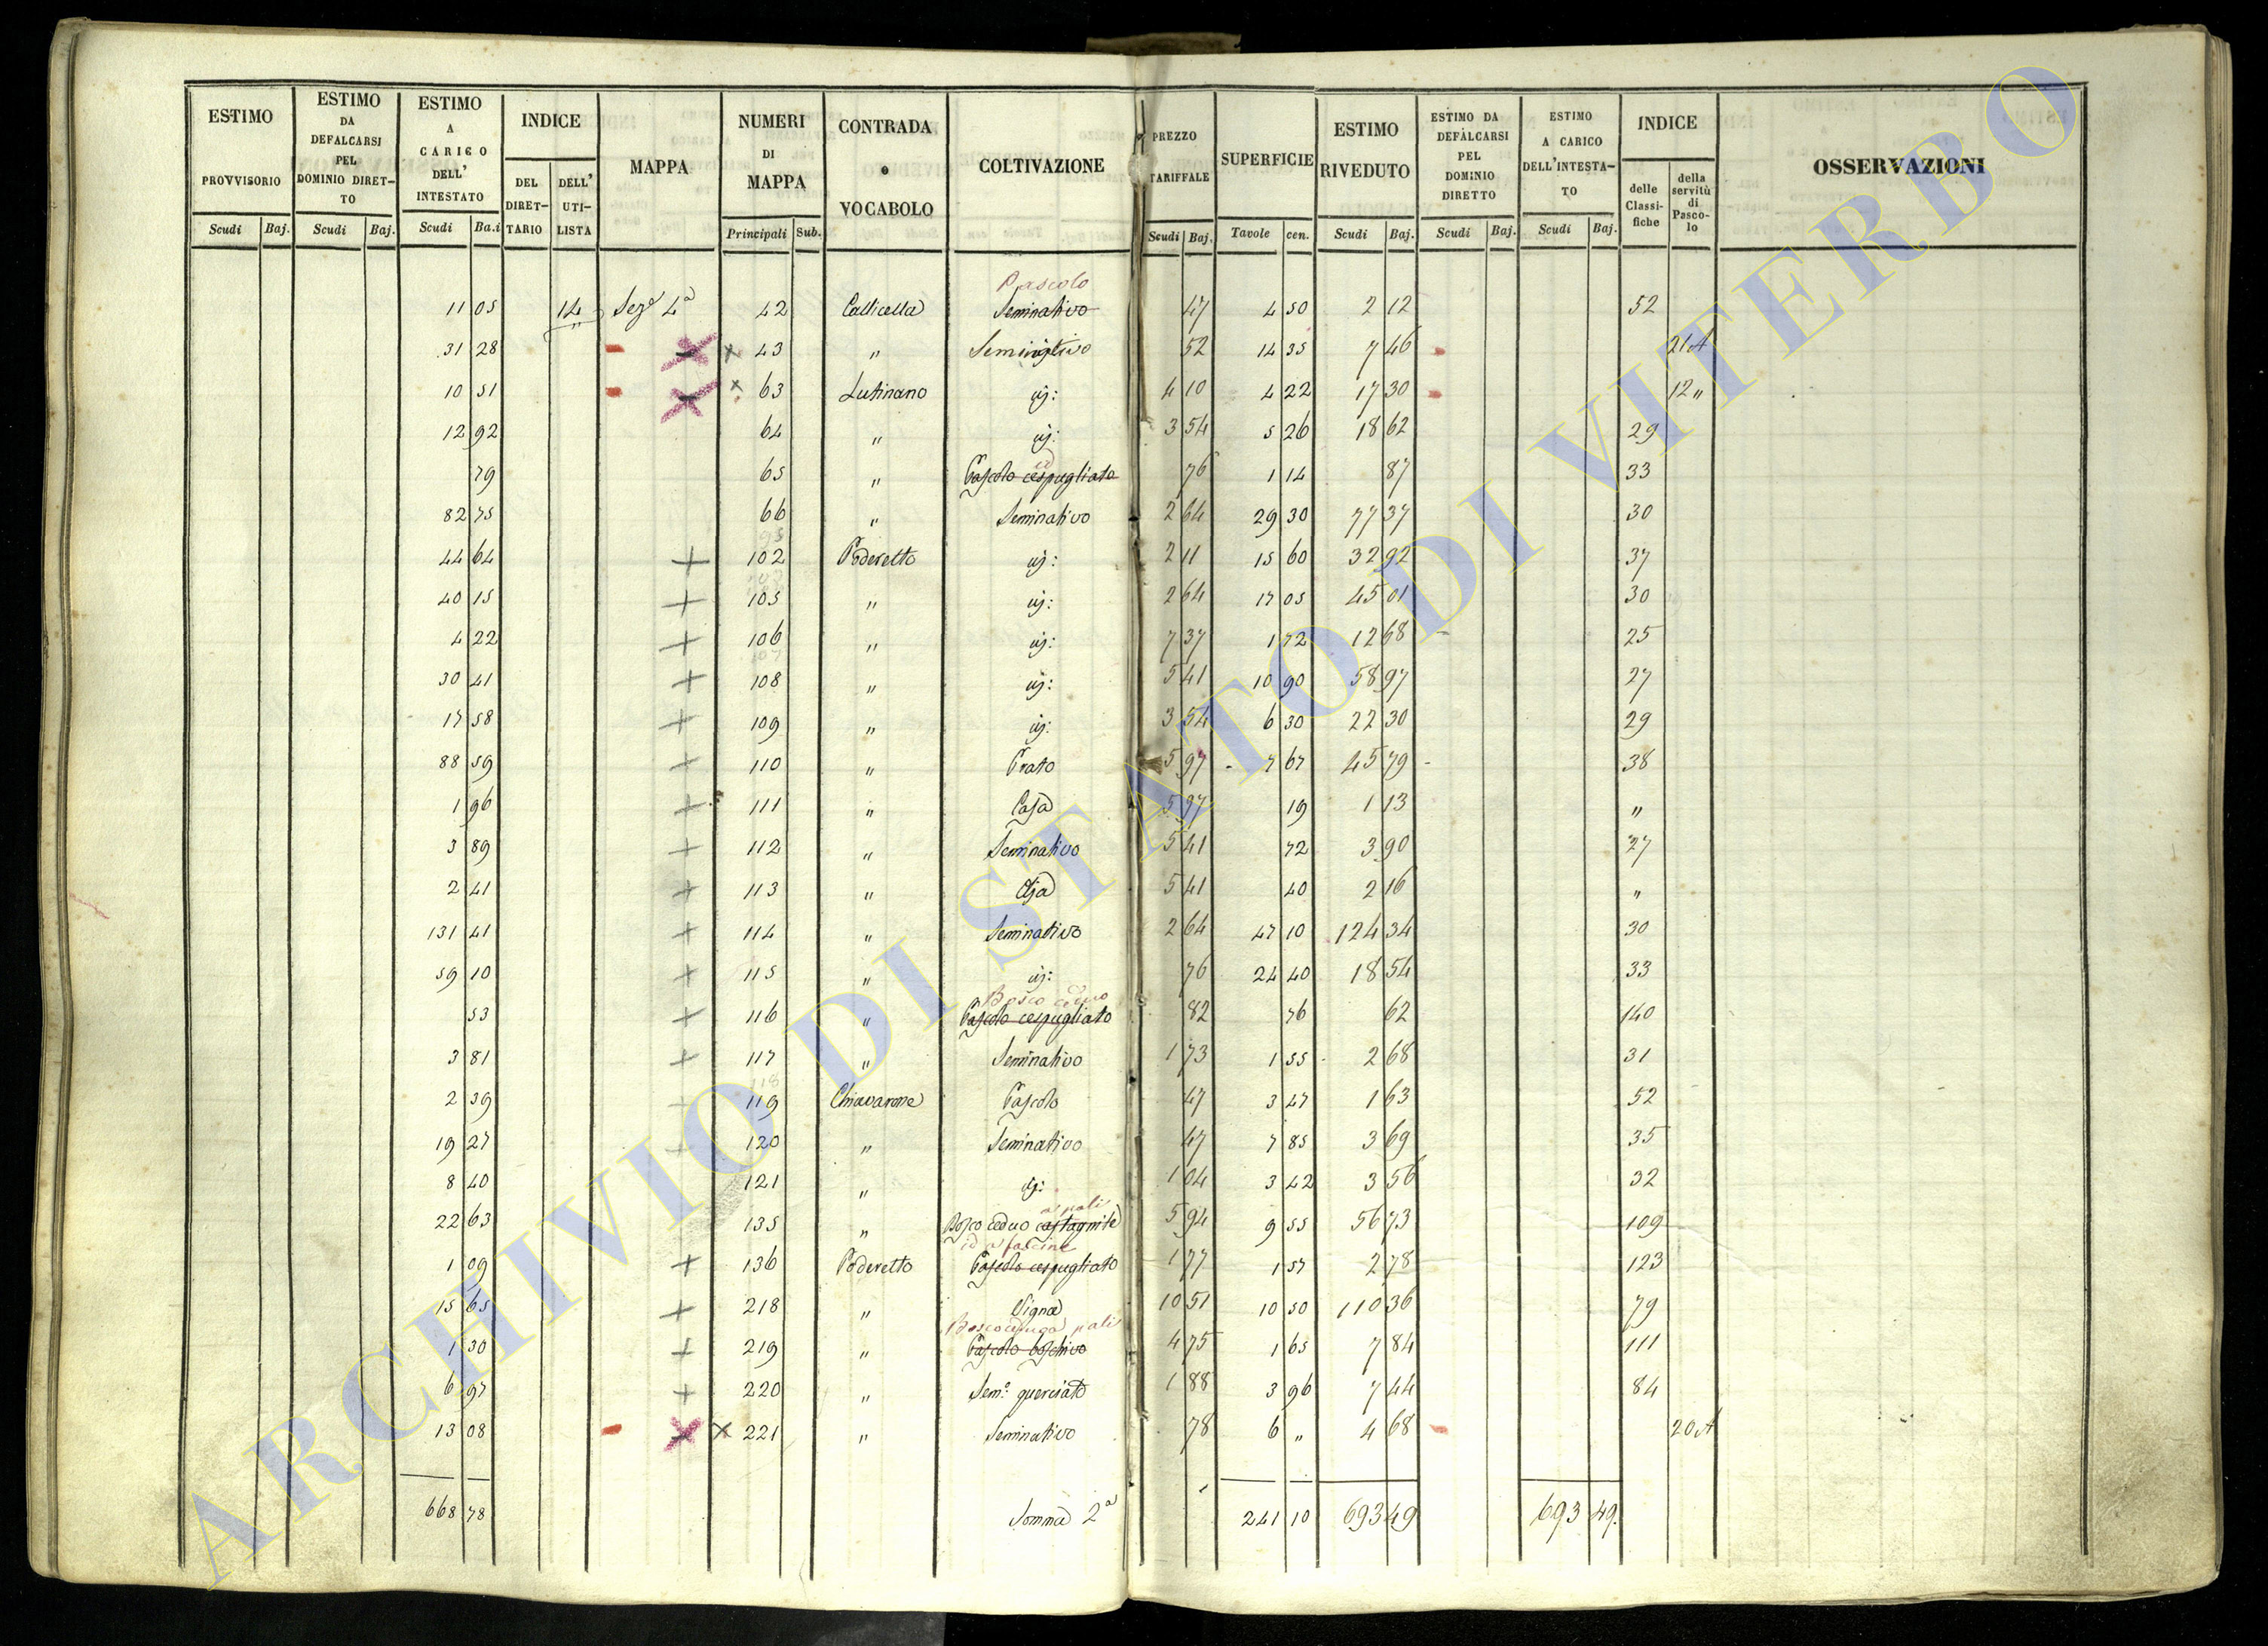 ESTIMO PROVVISORIO | ESTIMO DA DEFALCARSI PEL DOMINIO DIRET-TO | ESTIMO A CARICO DELL' INTESTATO | INDICE | MAPPA | NUMERI DI MAPPA | CONTRADA o VOCABOLO | COLTIVAZIONE | PREZZO TARIFFALE | SUPERFICIE | ESTIMO RIVEDUTO | ESTIMO DA DEFALCARSI PEL DOMINIO DIRETTO | ESTIMO A CARICO DELL'INTESTA-TO | INDICE | OSSERVAZIONI
DEL DIRET-TARIO | DELL' UTI-LISTA | delle Classi-fiche | della servitù di Pasco-lo
Scudi | Baj. | Scudi | Baj. | Scudi | Ba.i | Principali | Sub. | Scudi | Baj. | Tavole | cen. | Scudi | Baj. | Scudi | Baj. | Scudi | Baj.
Pascolo
11 05 | 14 | Sez.e 4a | 42 | Callicella | Seminativo | 47 | 4 50 | 2 12 | 52
31 28 | × 43 | " | Seminativo | 52 | 14 35 | 7 46 | 21 A
10 51 | × 63 | Lutinano | id: | 4 10 | 4 22 | 17 30 | 12 "
12 92 | 64 | " | id: | 3 54 | 5 26 | 18 62 | 29
id
79 | 65 | " | Pascolo cespugliato | 76 | 1 14 | 87 | 33
82 75 | 66 | " | Seminativo | 2 64 | 29 30 | 77 37 | 30
44 64 | + | 102 | Poderetto | id: | 2 11 | 15 60 | 32 92 | 37
40 15 | + | 105 | " | id: | 2 64 | 17 05 | 45 01 | 30
4 22 | + | 106 | " | id: | 7 37 | 1 72 | 12 68 | 25
30 41 | + | 108 | " | id: | 5 41 | 10 90 | 58 97 | 27
17 58 | + | 109 | " | id: | 3 54 | 6 30 | 22 30 | 29
88 59 | + | 110 | " | Prato | 5 97 | 7 67 | 45 79 | 38
1 96 | + | 111 | " | Casa | 5 97 | 19 | 1 13 | "
3 89 | + | 112 | " | Seminativo | 5 41 | 72 | 3 90 | 27
2 41 | + | 113 | " | Aja | 5 41 | 40 | 2 16 | "
131 41 | + | 114 | " | Seminativo | 2 64 | 47 10 | 124 34 | 30
59 10 | + | 115 | " | id: | 76 | 24 40 | 18 54 | 33
Bosco ceduo
53 | + | 116 | " | Pascolo cespugliato | 82 | 76 | 62 | 140
3 81 | + | 117 | " | Seminativo | 1 73 | 1 55 | 2 68 | 31
2 39 | + | 119 | Chiavarone | Pascolo | 47 | 3 47 | 1 63 | 52
19 27 | + | 120 | " | Seminativo | 47 | 7 85 | 3 69 | 35
8 40 | 121 | " | id: | 1 04 | 3 42 | 3 56 | 32
a pali
22 63 | 135 | " | Bosco ceduo castagnile | 5 94 | 9 55 | 56 73 | 109
id a fascine
1 09 | + | 136 | Poderetto | Pascolo cespugliato | 1 77 | 1 57 | 2 78 | 123
15 65 | + | 218 | " | Vigna | 10 51 | 10 50 | 110 36 | 79
Bosco ceduo a pali
1 30 | + | 219 | " | Pascolo boschivo | 4 75 | 1 65 | 7 84 | 111
6 97 | + | 220 | " | Sem.o querciato | 1 88 | 3 96 | 7 44 | 84
13 08 | × 221 | " | Seminativo | 78 | 6 " | 4 68 | 20 A
668 78 | Somma 2a | 241 10 | 693 49 | 693 49.
ARCHIVIO DI STATO DI VITERBO